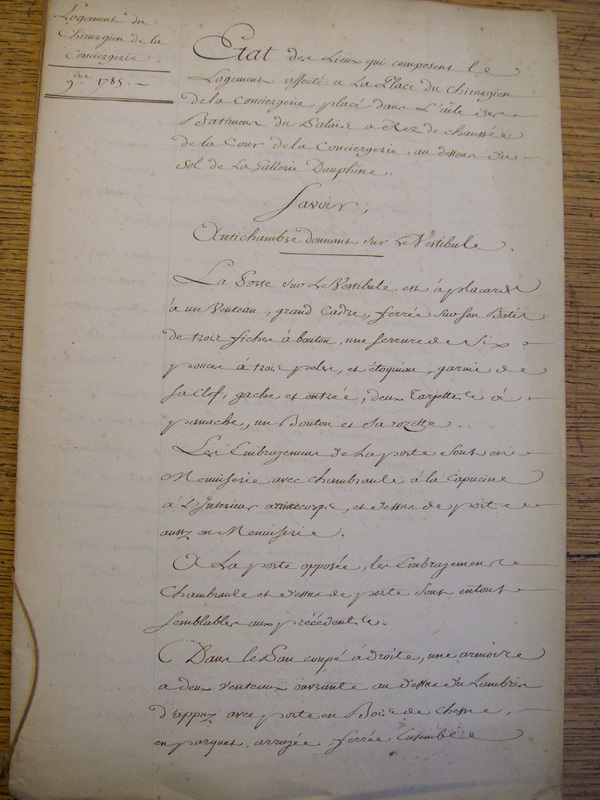 Logement du
Chirurgien de la
Conciergerie
9.bre 1785.
Etat des Lieux qui composent le
Logement affecté a La Place du Chirurgien
de la Conciergerie placé dans L'aile des
Batimens du Palais a Rez de chaussée
de la Cour de la Conciergerie, au dessous du
Sol de La Gallerie Dauphine.
Savoir,
Antichambre donnant sur Le Vestibule.
La Porte sur Le Vestibule est à placard
à un Venteau, grand Cadre, ferrée sur son Batis
de trois fiches à bouton, une serrure de Six
pouces à trois pelles, et étoquiau, garnie de
sa Clef, gache et entrée, deux Targettes à
panache, un Bouton et sa rozette.
Les Embrazemens de La porte sont en
Menuiserie avec chambranle à la capucine
à L'Interieur, et dessus de porte
aussy en Menuiserie.
A La porte opposée, les Embrazemens
Chambranle et dessus de porte sont entout
semblables aux précédents.
Dans le Pan coupé à droite, une armoire
a deux Venteaux ouvrante au dessus du Lambris
d'appuy avec porte en Bois de chesne,
en parquet, arrazée, ferrée